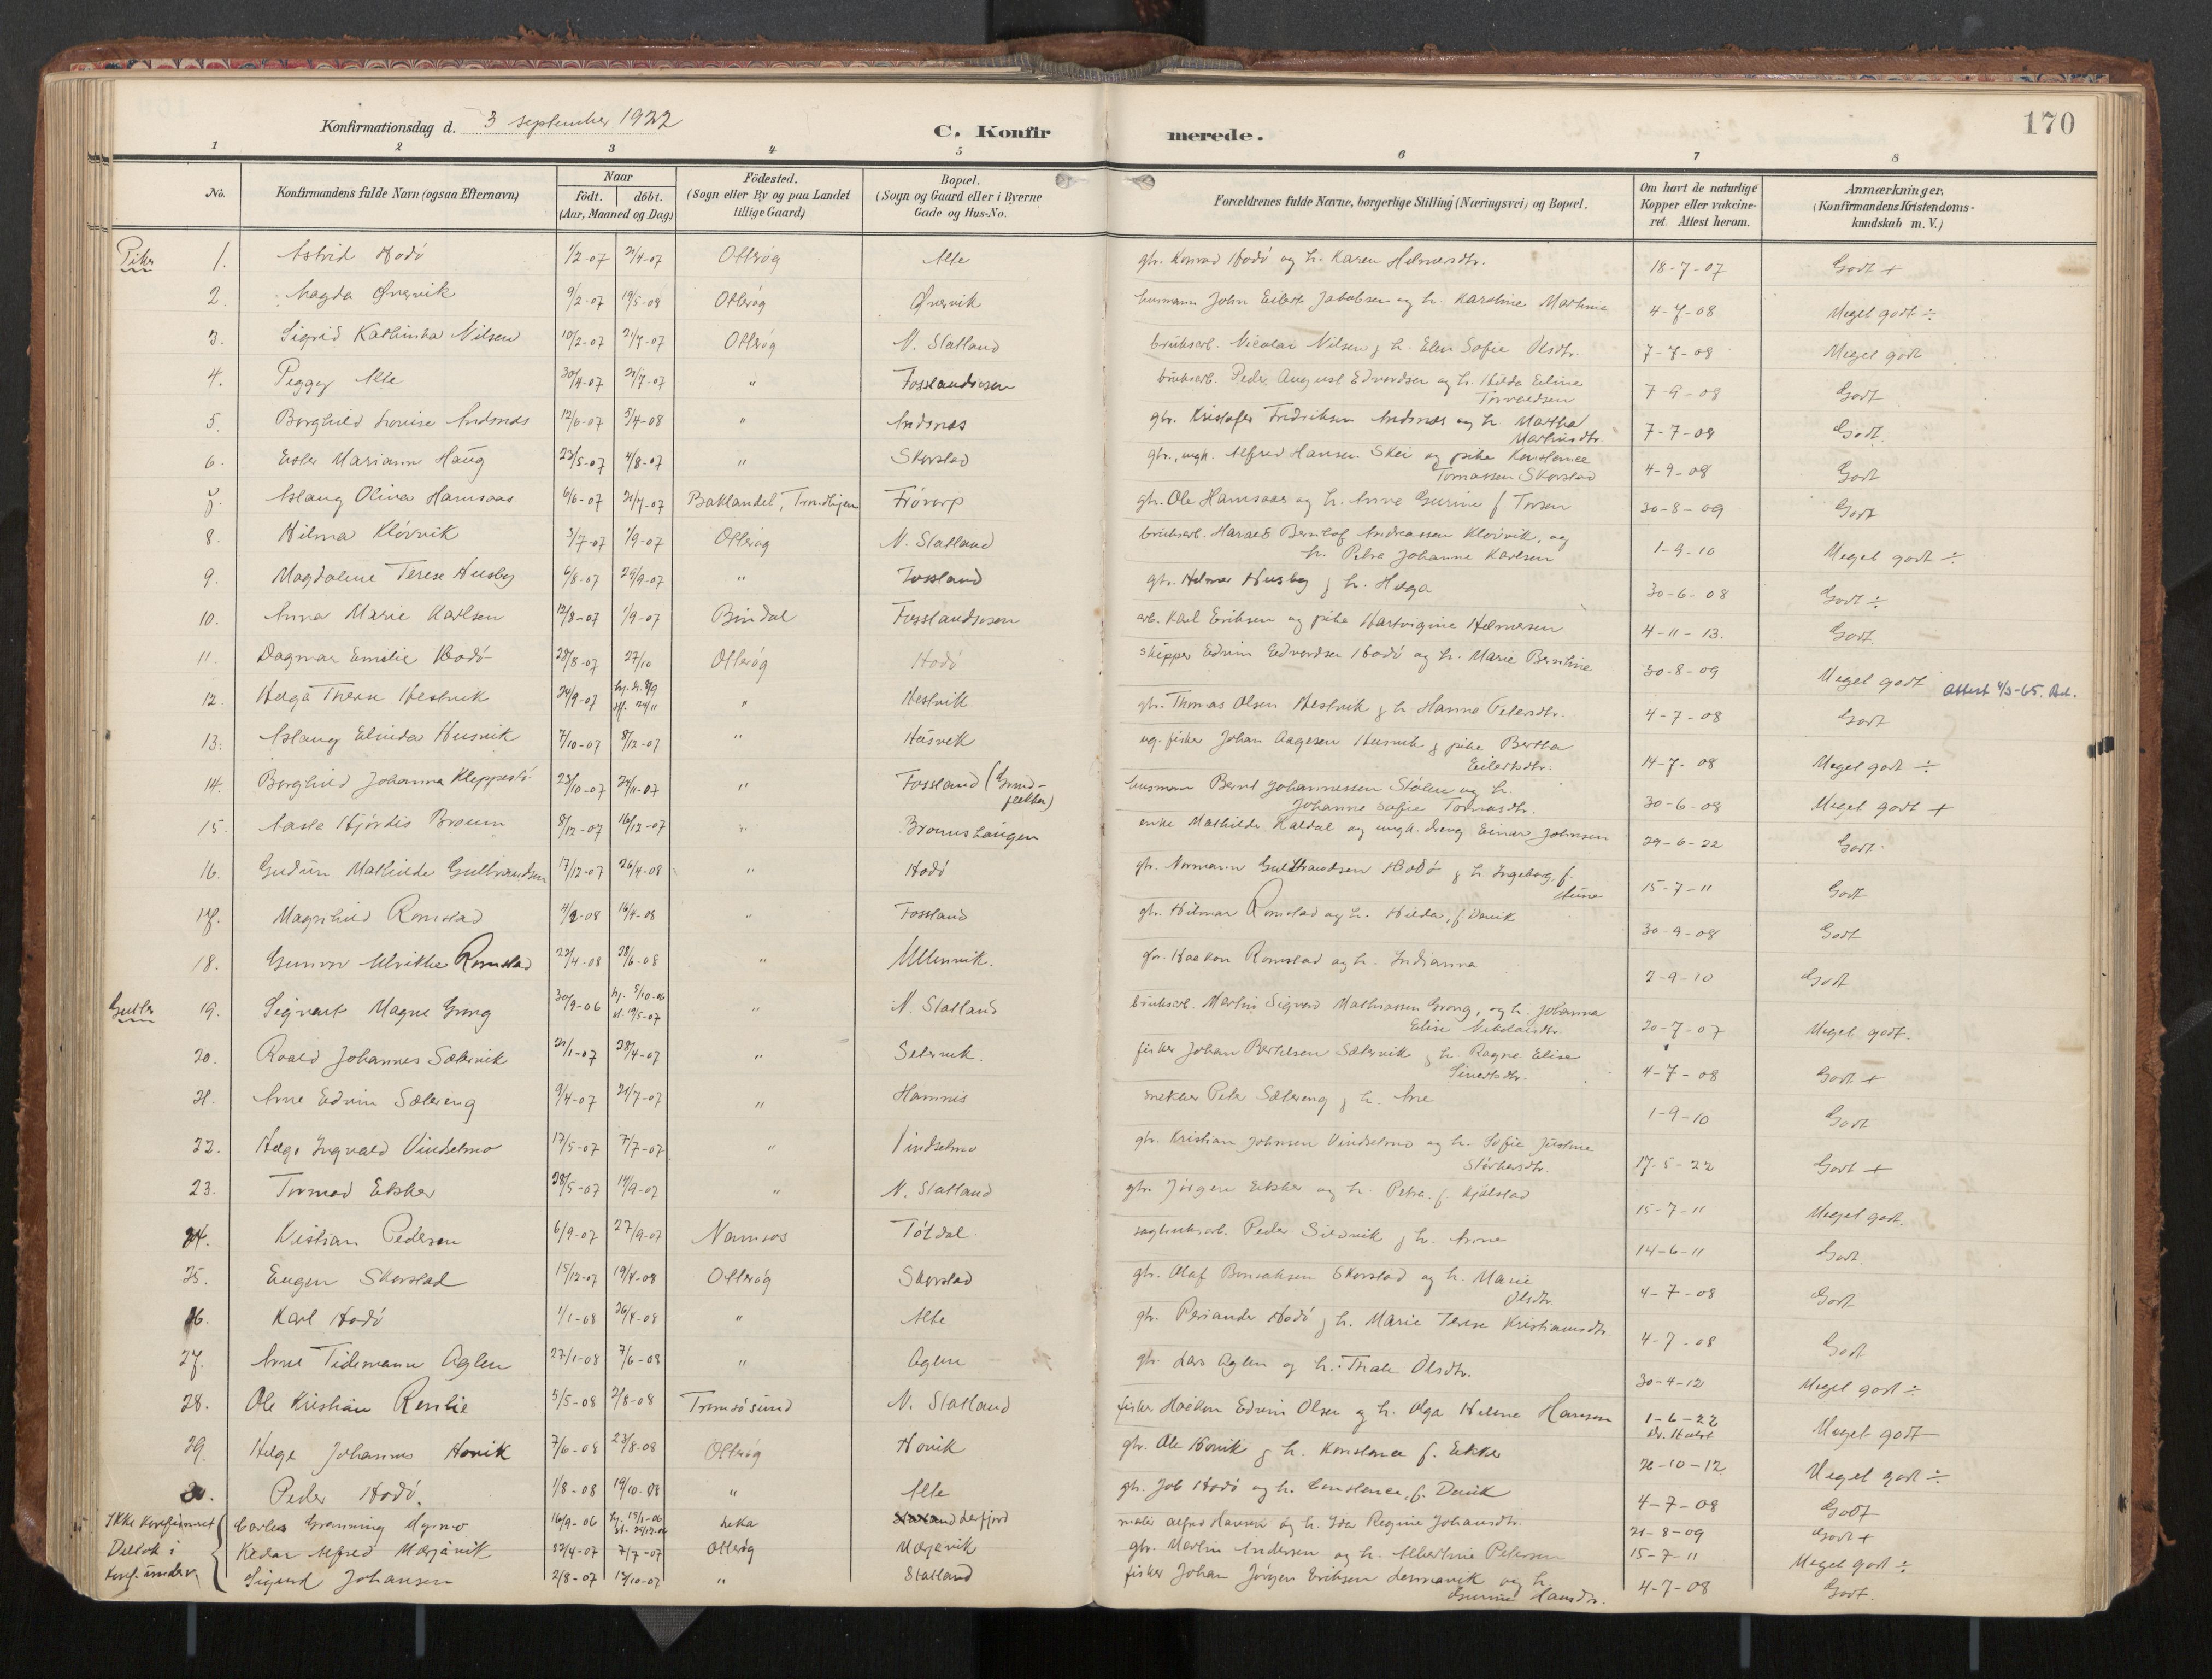 170
Konfirmationsdag d. 3 september 1922
C. Konfirmerede.
1 2 3 4 5 6 7 8
No. Konfirmandens fulde Navn (ogsaa Efternavn) Naar födt. döbt. (Aar, Maaned og Dag) Födested. (Sogn eller By og paa Landet tillige Gaard) Bopæl. (Sogn og Gaard eller i Byerne Gade og Hus-No. Forældrenes fulde Navne, borgerlige Stilling (Næringsvei) og Bopæl. Om havt de naturlige Kopper eller vakcineret Attest herom. Anmærkninger, (Konfirmandens Kristendomskundskab m. V.)
Piker 1. Astrid Hodö 1/2-07 21/4-07 Otterøy Alte gbr. Konrad Hodö og h. Karen Helmersdtr. 18-7-07 Godt +
2. Magda Øvervik 9/2-07 19/5-08 Otterøy Øvervik husmann John Eilert Jakobsen og h. Karoline Martine 4-7-08 Meget godt ÷
3. Sigrid Kathinka Nilsen 10/2-07 21/7-07 Otterøy N. Statland bruksarb. Nicolai Nilsen g h. Elen Sofie Olsdtr. 7-7-08 Meget godt
4. Peggy Alte 30/4-07 21/7-07 " Fosslandsosen bruksarb. Peder August Edvardsen og h. Hilda Eline
7-9-08 Godt
5. Borghild Lovise Andsnes 12/6-07 5/4-08 " Andsnes gbr. Kristofer Fredriksen Andsnes og h. Martha
Martinsdtr. 7-7-08 Godt.
6. Ester Mariann Haug 23/5-07 4/8-07 " Skorstad gbr., ungk. Alfred Hansen Skei og pike Konstance
Tomassen Skorstad 4-9-08 Godt
7. Aslaug Oliva Hamsaas 6/6-07 21/7-07 Baklandet, Trondhjem Frövarp gbr. Ole Hamsaas og h. Anna Gurine f. Torsen 30-8-09 Godt
8. Hilma Klövvik 3/7-07 1/9-07 Otterøy N. Statland bruksarb. Harald Berntof Andreassen Klövvik, og
h. Petra Johanne Karlsen 1-9-10 Meget godt ÷
9. Magdalene Terese Husby 6/8-07 29/9-07 " Fossland gbr. Helmer Husby g h. Helga 30-6-08 Godt ÷
10. Anna Marie Karlsen 12/8-07 1/9-07 Bindal Fosslandsosen arb. Karl Eriksen og pike Hartvigine Helmersen 4-11-13. Godt
11. Dagmar Emilie Hodö 28/8-07 27/10 Otterøg Hodö skipper Edvin Edvardsen Hodö og h. Marie Berntine 30-8-09 Meget godt Attest 4/3-65.
12. Helga Therese Hestvik 24/9-07 hj. d. 8/9 24/11 " Hestvik gbr. Thomas Olsen Hestvik g h Hanna Petersdtr. 4-7-08 Godt
13. Aslaug Elvida Husvik 7/10-07 8/12-07 " Husvik ug. fisker Johan Aagesen Husvik g pike Bertha
Eilertsdtr. 14-7-08 Meget godt ÷
14. Borghild Johanna Kleppestö 23/10-07 24/11-07 " Fossland (Grind-
husmann Bernt Johannessen Stölen og h.
Johanne Sofie Tomasdtr. 30-6-08 Meget godt +
15. Aasta Hjördis Broum 8/12-07 16/12-07 " Broumshaugen enke Mathilde Kaldal og ungk. dreng Einar Johnsen 29-6-22 Godt.
16. Gudrun Mathilde Gulbrandsen 17/12-07 26/4-08 " Hodö gbr. Normann Guldbrandsen Hodö g h Ingeborg, f.
Aune 15-7-11 Godt
17. Magnhild Romstad 4/2-08 16/4-08 " Fossland gbr. Hilmar Romstad og h. Hilda, f. Devik 30-9-08 Godt
18. Gunvor Ulrikke Romstad 22/4-08 28/6-08 " Ullenvik. gbr. Haakon Romstad og h. Indianna 2-9-10 Godt
Gutter 19. Sigvart Magne Grong 30/9-06 hj. 5/10-06 st. 19/5-07 " N. Statland bruksarb. Martin Sigvard Mathiassen Grong, og h. Johanna
Elise Nikolaidtr. 20-7-07 Meget godt.
20. Roald Johannes Sætervik 21/1-07 28/4-07 " Setervik. fisker Johan Bertelsen Sætervik g h. Ragna Elise
Sivertsdtr. 4-7-08 Godt +
21. Arne Edvin Sætereng 9/4-07 21/7-07 " Hamnes snekker Peter Sætereng g h. Ane 1-9-10 Godt
22. Helge Ingvald Vindsetmo 17/5-07 7/7-07 " Vindsetmo gbr. Kristian Johnsen Vindsetmo og h. Sofie Justine
17-5-22 Godt +
23. Tormod Ekker 28/5-07 14/9-07 " N. Statland gbr. Jörgen Ekker og h. Petra f. Kjölstad 15-7-11 Meget godt
24. Kristian Pedersen 6/9-07 27/9-07 Namsos Tötdal sagbruksarb. Peder h. Anna 14-6-11 Godt.
25. Eugen Skorstad 15/12-07 19/4-08 Otterøg Skorstad gbr. Olaf Bonsaksen Skorstad og h. Marie
Olsdtr. 4-7-08 Godt
26. Karl Hodö 1/1-08 26/4-08 " Alte gbr. Periander Hodö g h. Marie Terese Kristiansdtr. 4-7-08 Godt
27. Arne Tidemann Aglen 27/1-08 7/6-08 " Aglen gbr. Lars Aglen og h. Thale Olsdtr. 30-4-12 Meget godt ÷
28. Ole Kristian Renlie 5/5-08 2/8-08 Tromsösund N. Statland fisker Haakon Edvin Olsen og h. Olga Helene Hansen 1-6-22
Meget godt
29. Helge Johannes Hovik 7/6-08 23/8-08 Otterøg Hovik gbr. Ole Hovik g h. Konstance f. Ekker 26-10-12 Meget godt ÷
30. Peder Hodö. 1/8-08 19/10-08 " Alte gbr. Job Hodö og h. Constance, f. Devik 4-7-08 Godt
Ikke konfirmert Carles Grönning Mymo 16/9-06 Leka Lerfjord maler Alfred Hansen og h. Ida Regine Johansdtr. 21-8-09 Godt +
Deltok i Kedar Alfred Mærjavik 22/4-07 7/7-07 Otterøg Mærjavik gbr. Martin Andersen og h. Albertine Petersen 15-7-11 Meget godt ÷
konf. underv. Sigurd Johansen 2/8-07 13/10-07 " Statland fisker Johan Jörgen Eriksen og h.
Gurine Hansdtr. 4-7-08 Godt.